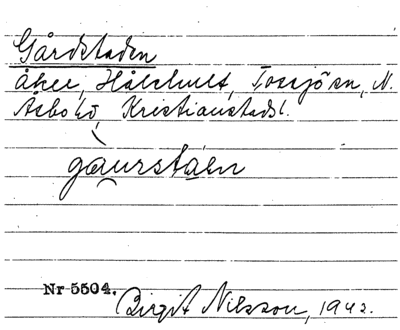 Gårdstaden
Åker, Hålehult, Tossjöен, N.
Åsbo hd, Kristianstads l.
gau̯rstáen
Nr 5504.
Birgit Nilsson, 1942.